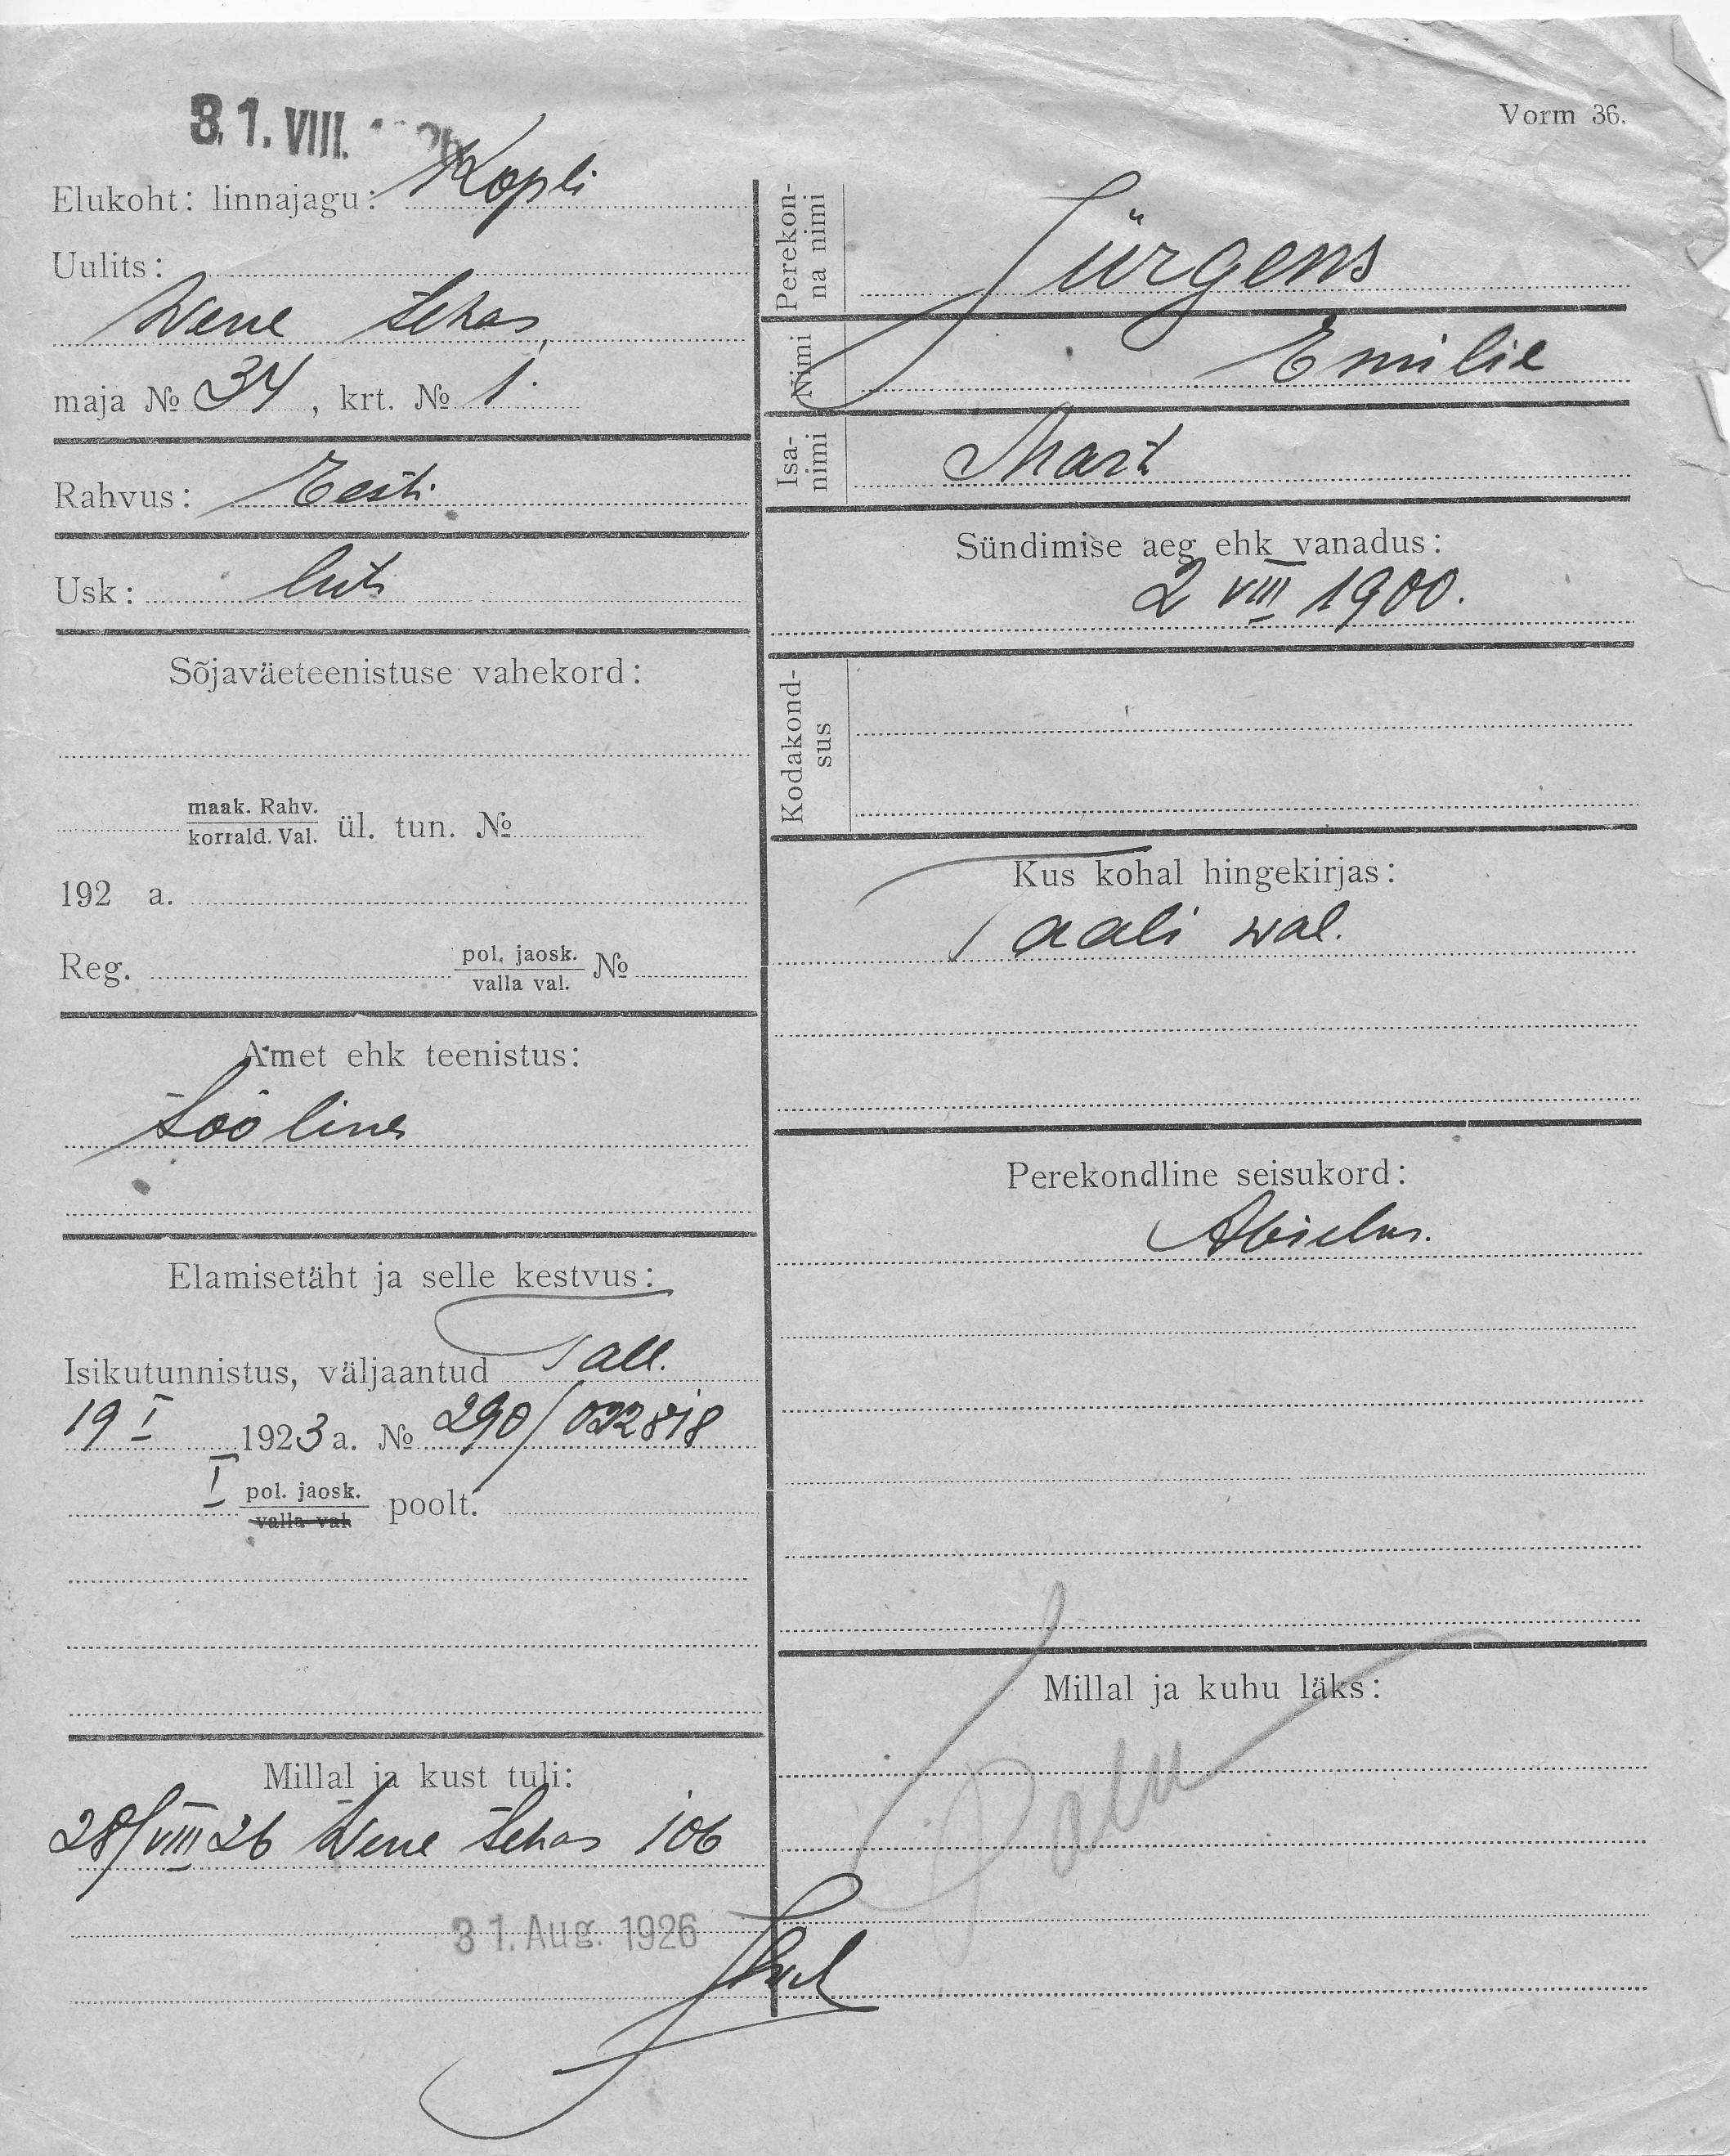 31. VIII.
Vorm 36.
Elukoht: linnajagu: Kopli
Uulits:
Wene tehas,
maja № 34, krt. № 1.
Rahvus: Eesti
Usk: luts
Sõjaväeteenistuse vahekord:
maak. Rahv.
korrald. Val. ül. tun. №
192 a.
Reg. pol. jaosk.
valla val. №
Amet ehk teenistus:
tööline
Elamisetäht ja selle kestvus:
Isikutunnistus, väljaantud Tall.
19 I 1923 a. № 290/022818
I pol. jaosk.
valla val. poolt.
Millal ja kust tuli:
28/VIII 26 Wene tehas 106
31. Aug. 1926
Perekon-
na nimi
Jürgens
Nimi Emilie
Isa-
nimi Mart
Sündimise aeg ehk vanadus:
2 VIII 1900.
Kodakond-
sus
Kus kohal hingekirjas:
Taali wal.
Perekondline seisukord:
Abielus.
Millal ja kuhu läks: